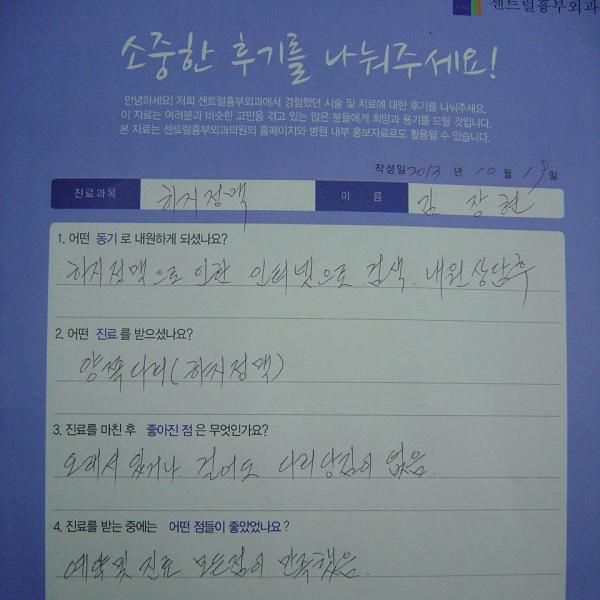 센트럴흉부외과
소중한 후기를 나눠주세요!
안녕하세요! 저희 센트럴흉부외과에서 경험했던 시술 및 치료에 대한 후기를 나눠주세요.
이 자료는 여러분과 비슷한 고민을 겪고 있는 많은 분들에게 희망과 용기를 드릴 것입니다.
본 자료는 센트럴흉부외과의원의 홈페이지와 병원 내부 홍보자료로도 활용될 수 있습니다.
작성일 2013 년 10 월 일
진료과목 하지정맥 이 름 김 장 현
1. 어떤 동기 로 내원하게 되셨나요?
하지정맥으로 인한 인터넷으로 검색. 내원 상담후
2. 어떤 진료 를 받으셨나요?
양쪽다리(하지정맥)
3. 진료를 마친 후 좋아진 점 은 무엇인가요?
오래서 있거나 걸어도 다리당김이 없음.
4. 진료를 받는 중에는 어떤 점들이 좋았었나요?
예약및 진료 모든점이 만족했음.